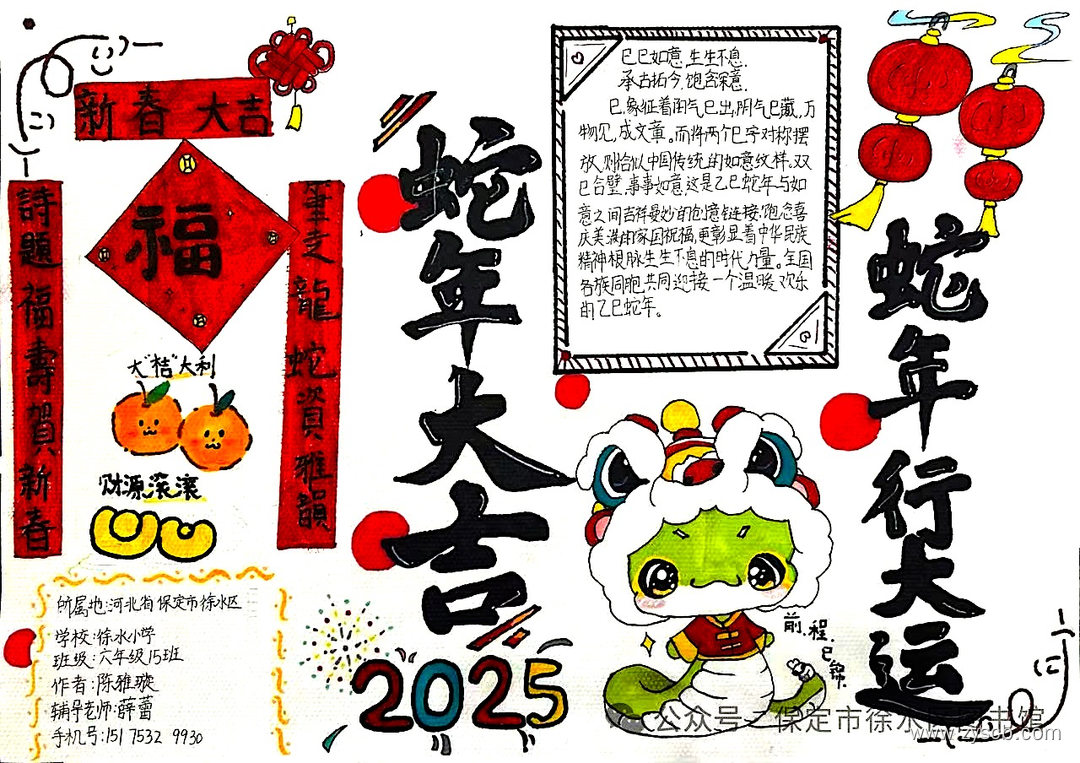 新春大吉
詩題福壽賀新春
筆走龍蛇資雅韻
福
大“桔”大利
财源滚滚
所属地:河北省保定市徐水区
学校:徐水小学
班级:六年级15班
作者:陈雅璇
辅导老师:薛蕾
手机号:151 7532 9930
蛇年大吉
2025
巳巳如意,生生不息.
承古拓今,饱含深意.
巳,象征着阳气巳出,阴气巳藏,万
物见,成文章。而将两个巳字对称摆
放,则恰似中国传统的如意纹样。双
巳合璧,事事如意,这是乙巳蛇年与如
意之间吉祥曼妙的创意链接,饱含喜
庆美满的家国祝福,更彰显着中华民族
精神根脉生生不息的时代力量。全国
各族同胞共同迎接一个温暖欢乐
的乙巳蛇年。
蛇年行大运
前程巳锦
公众号 保定市徐水区图书馆
www.zyscb.com